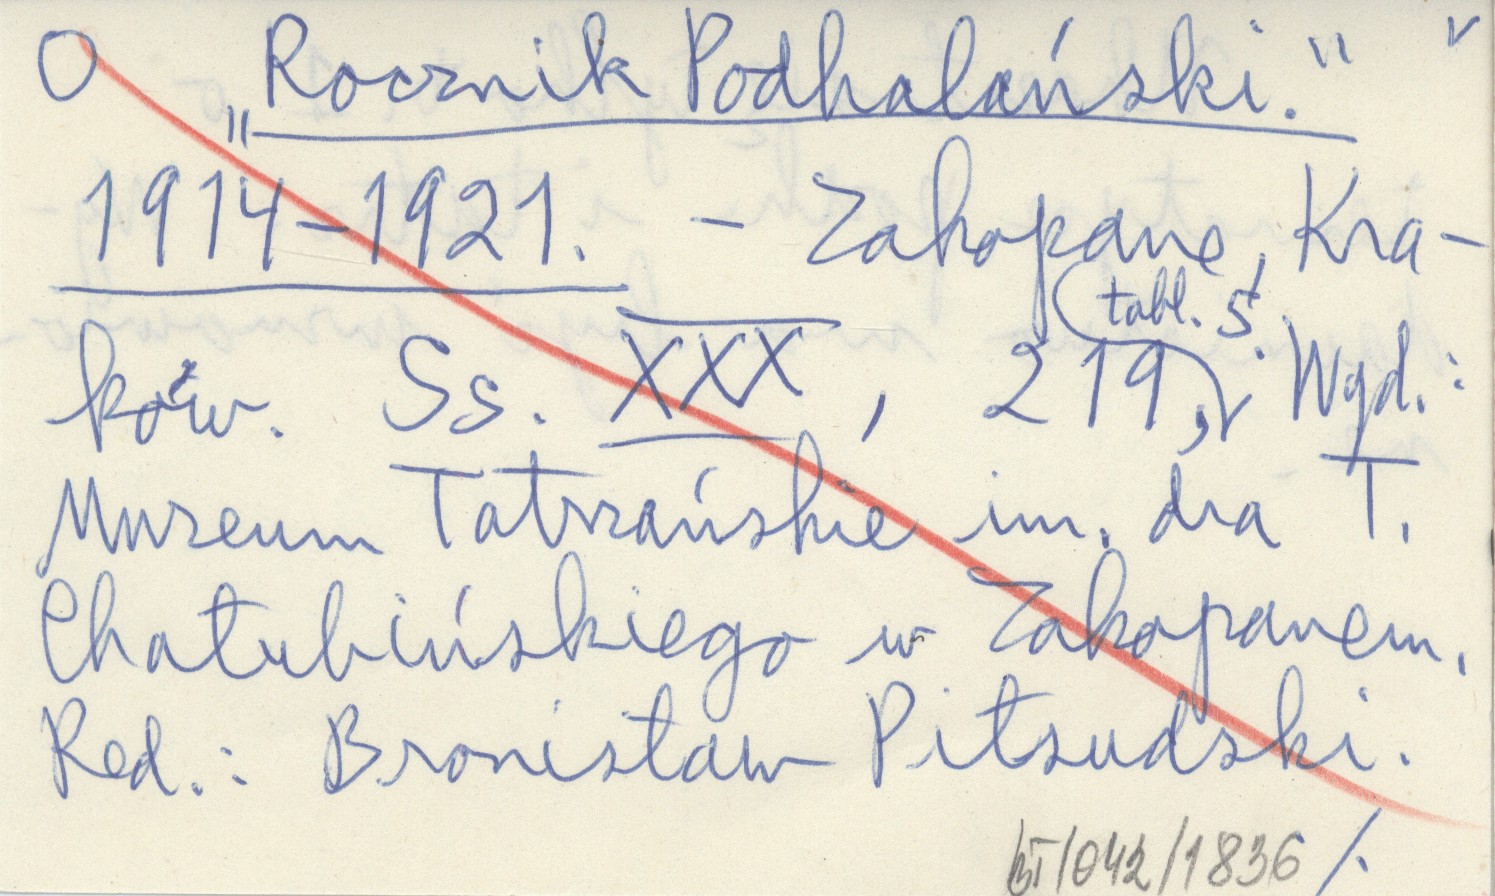 O „Rocznik Podhalański." v
1914–1921. – Zakopane, Kra-
ków. Ss. XXX, 219, (tabl. 5. Wyd.:
Muzeum Tatrzańskie im. dra T.
Chałubińskiego w Zakopanem.
Red.: Bronisław Piłsudski.
BT/042/1836 /.